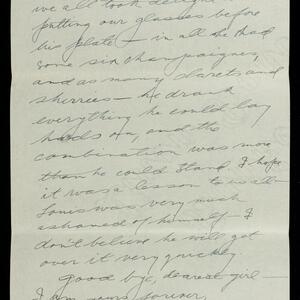 we all took delight in
putting our glasses before
his plate — in all he had
some six champaignes,
and as many clarets and
sherrees — he drank
everything he could lay
hands on, and the
combination was more
than he could stand I hope
it was a lesson to us all—
Louis was very much
ashamed of himself — I
don't believe he will get
over it very quickly.
Good bye, dearest girl —
I am yours forever,